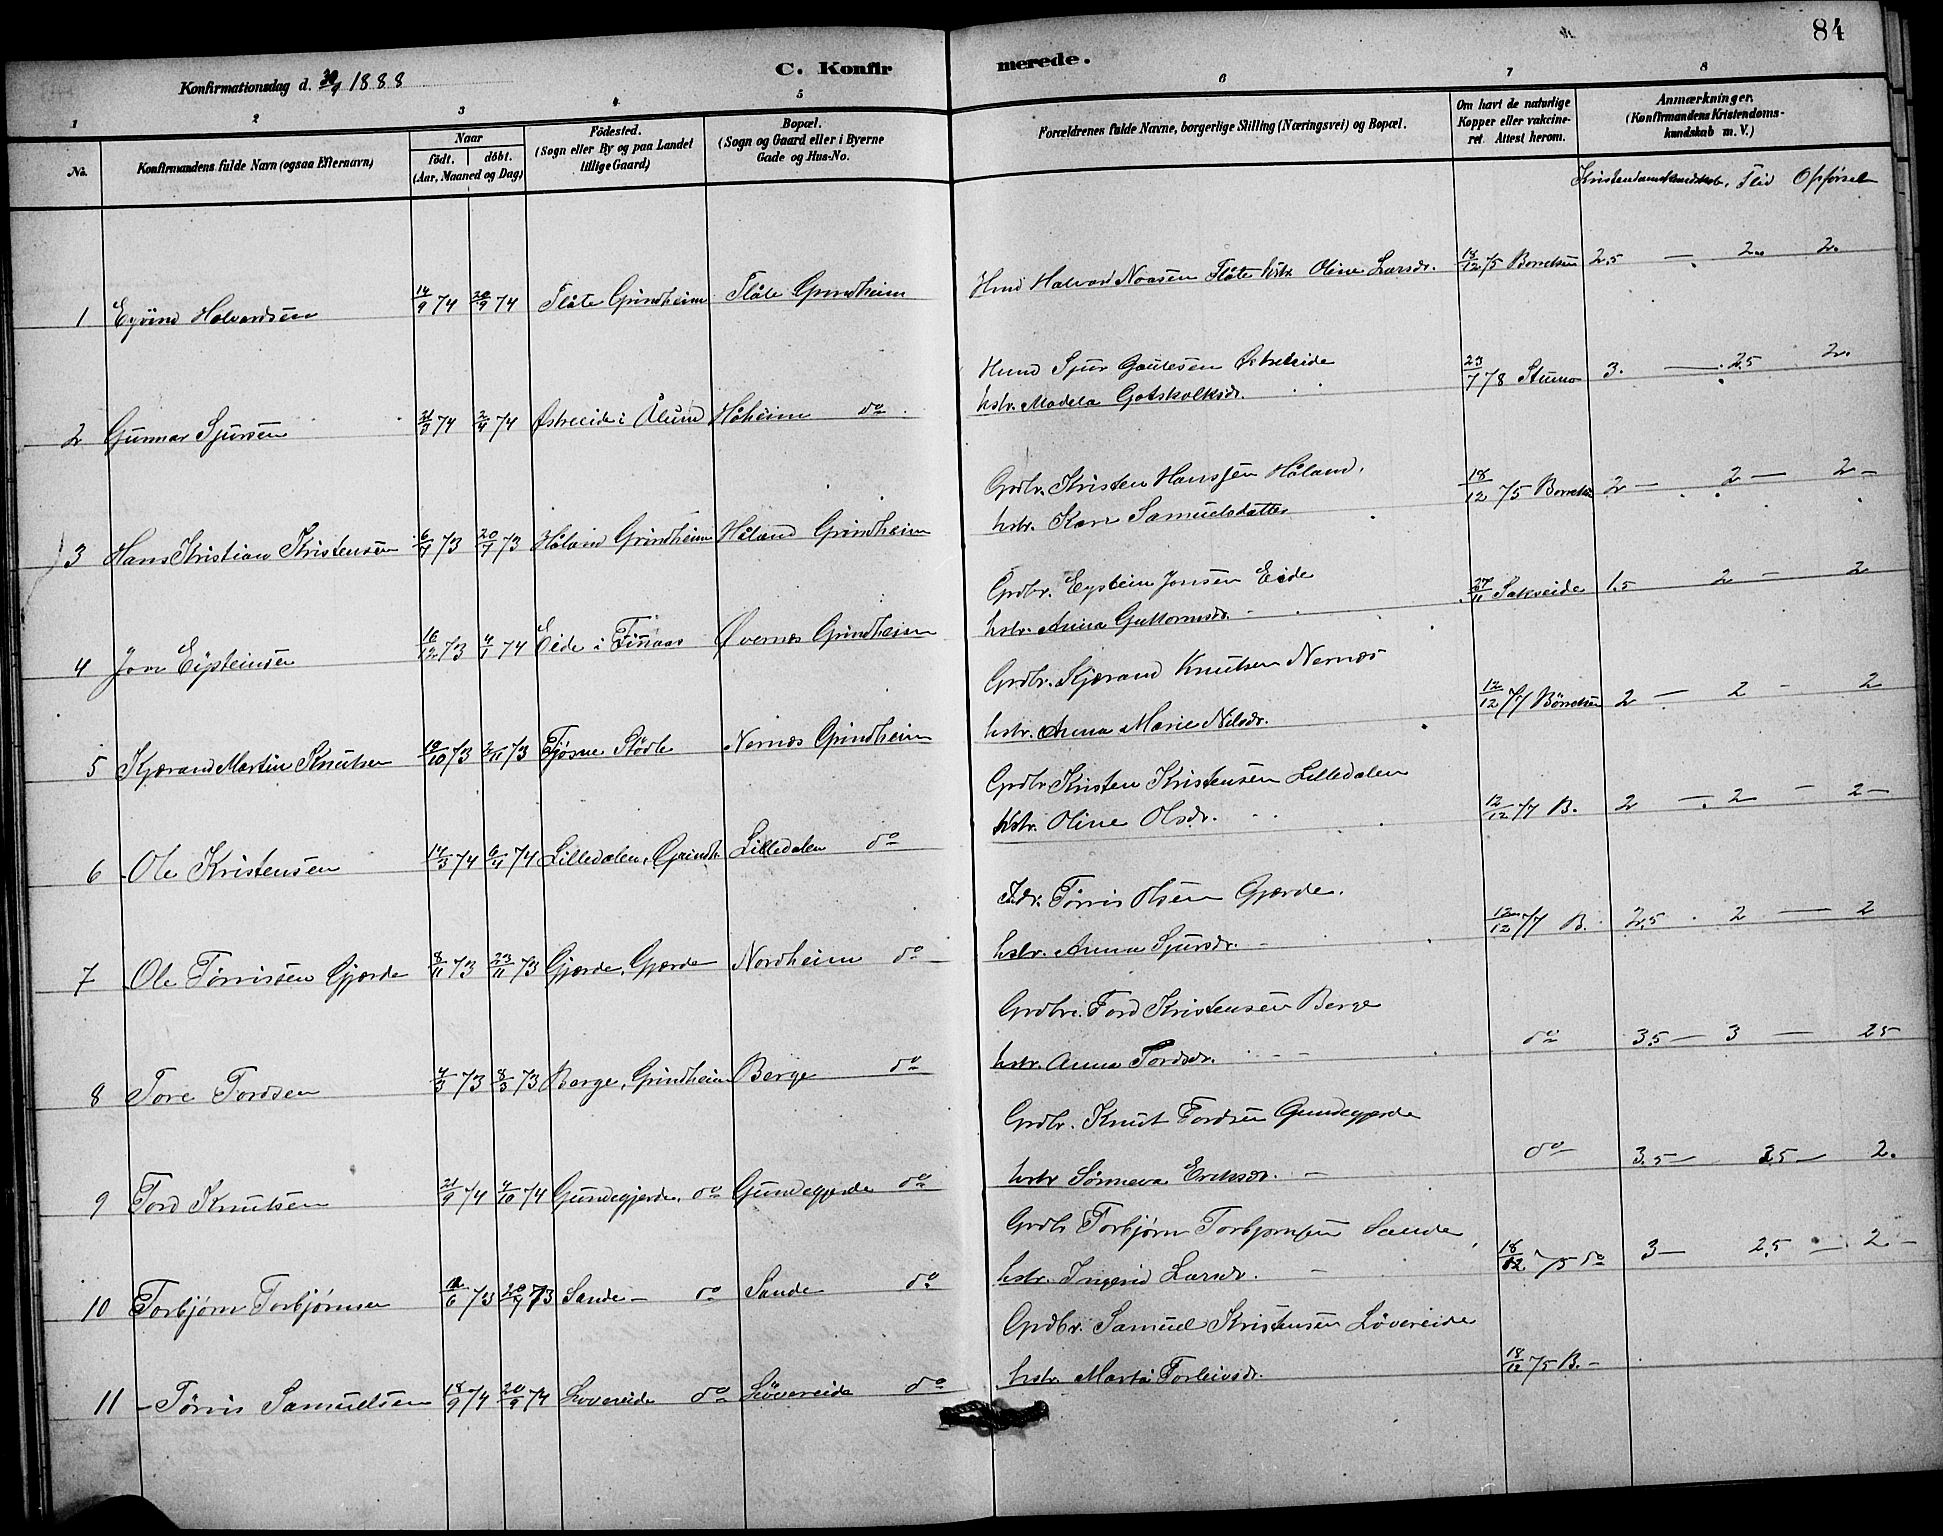 84
Konfirmationsdag d. 30/9 1888
C. Konfir
merede.
1 2 3 4 5 6 7 8
No.
Konfirmandens fulde Navn (ogsaa Efternavn)
Naar
födt. döbt.
(Aar, Maaned og Dag)
Födested.
(Sogn eller By og paa Landet
tillige Gaard)
Bopæl.
(Sogn og Gaard eller i Byerne
Gade og Hus-No.
Forældrenes fulde Navne, borgerlige Stilling (Næringsvei) og Bopæl.
Om havt de naturlige
Kopper eller vakcine-
ret. Attest herom.
Anmærkninger.
(Konfirmandens Kristendoms-
kundskab m. V.)
Kristendomskundskab, Flid Opførsel
Hmd Halvard Noasen Flåte hstr. Oline Larsdr. 18/12 75 Borretsen 2.5 — 2. 2.
1 Eyvind Halvardsen 14/9 74 20/9 74 Flåte Grindheim Flåte Grindheim
Hmd Sjur Gautesen Østreeide 23/7 78 Stumo 3. — 2.5 2.
hstr. Madela Gotskalksdr.
2 Gunnar Sjursen 74 2/4 74 Østreeide i Ølund Håheim do
Grdbr. Kristen Hanssen Håland. 18/12 75 Borretsen 2 — 2 — 2 —
hstr. Kari Samuelsdatter
3 Hans Kristian Kristensen 6/7 73 20/7 73 Håland Grindheim Håland Grindheim
Grdbr. Eystein Jonsen Eide 27/11 Sakseide 1.5 2 — 2
hstr. Anna Guttormsdr. —
4 Jon Eysteinsen 16/12 73 4/1 74 Eide i Finaas Øvernæs Grindheim
Grdbr. Kjærand Knutsen Nernæs 12/12 77 Börretsen 2 — 2 - 2
hstr. Anna Marie Nilsdr.
5 Kjærand Martin Knutsen 10/10 73 2/11 73 Tjøsne Stødle Nernæs Grindheim
Grdbr Kristen Kristensen Lilledalen 12/12 77 B. 2 — 2 — 2 —
hstr. Oline Olsdr.
6 Ole Kristensen 14/3 74 6/4 74 Lilledalen, Grindh. Lilledalen do
Indr. Tørris Olsen Gjærde. 12/12 77 B. 2.5 . 2 — 2
hstr. Anna Sjursdr. —
7 Ole Tørrissen Gjærde 8/11 73 23/11 73 Gjærde, Gjærde Nordheim do —
Grdbr. Tord Kristensen Berge do 3.5 — 3 — 2.5
hstr. Anna Tordsdr.
8 Tore Tordsen 4/3 73 8/3 73 Berge, Grindheim Berge do
Grdbr. Knut Tordsen Gundegjerde do 3.5 — 3.5 — 2.
hstr Sønneva Eriksdr. —
9 Tord Knutsen 21/9 74 4/10 74 Gundegjerde, do Gundegjerde do
Grdb Torbjørn Torbjørnsen Sande, 18/12 75 do 3 — 2.5 — 2 —
hstr. Ingerid Larsdr. —
10 Torbjørn Torbjørnsen 73 73 Sande — do Sande do
Grdbr. Samuel Kristensen Løvereide 18/12 75 B. —
hstr Marta Torleivsdr.
11 — Tørris Samuelsen 18/9 74 20/9 74 Lovereide do Løvereide do